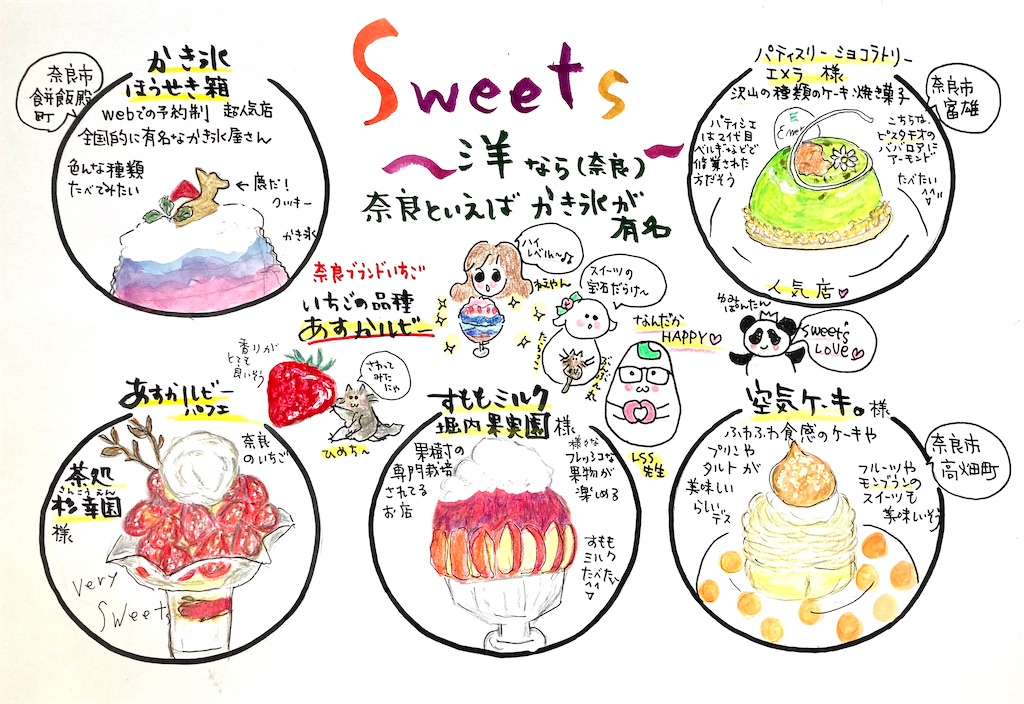 Sweets
〜洋なら(奈良)〜
奈良といえばかき氷が
有名
奈良市
餅飯殿
町
かき氷
ほうせき箱
webでの予約制 超人気店
全国的に有名なかき氷屋さん
色んな種類
たべてみたい
←鹿だ!
クッキー
かき氷
パティスリー ショコラトリー
エメラ 様
沢山の種類のケーキ・焼き菓子
奈良市
富雄
パティシエ
は2代目
ベルギーなどで
修業された
方だそう
こちらは、
ピスタチオの
ババロアに
アーモンド
たべたい
人気店
奈良ブランドいちご
いちごの品種
あすかルビー
ハイ
レベル〜♪
ねえやん
スイーツの
宝石だらけ〜
たらっこ
ぶんぶん丸
なんだか
HAPPY♡
LSS
先生
ゆみ
ぱんたん
Sweet's
LOVE♡
香りが
とても
良いそう
さわって
みた
にゃ
ひめち〜
あすかルビー
パフェ
奈良
のいちご
茶処
さんこうえん
杉幸園
様
Very
Sweets
すももミルク
堀内果実園 様
果樹の
専門栽培
されてる
お店
様々な
フレッシュな
果物が
楽しめる
すもも
ミルク
たべたい
空気ケーキ。様
ふわふわ食感のケーキや
プリンや
タルトが
美味しい
らしい
デス
フルーツや
モンブランの
スイーツも
美味しいそう
奈良市
高畑町